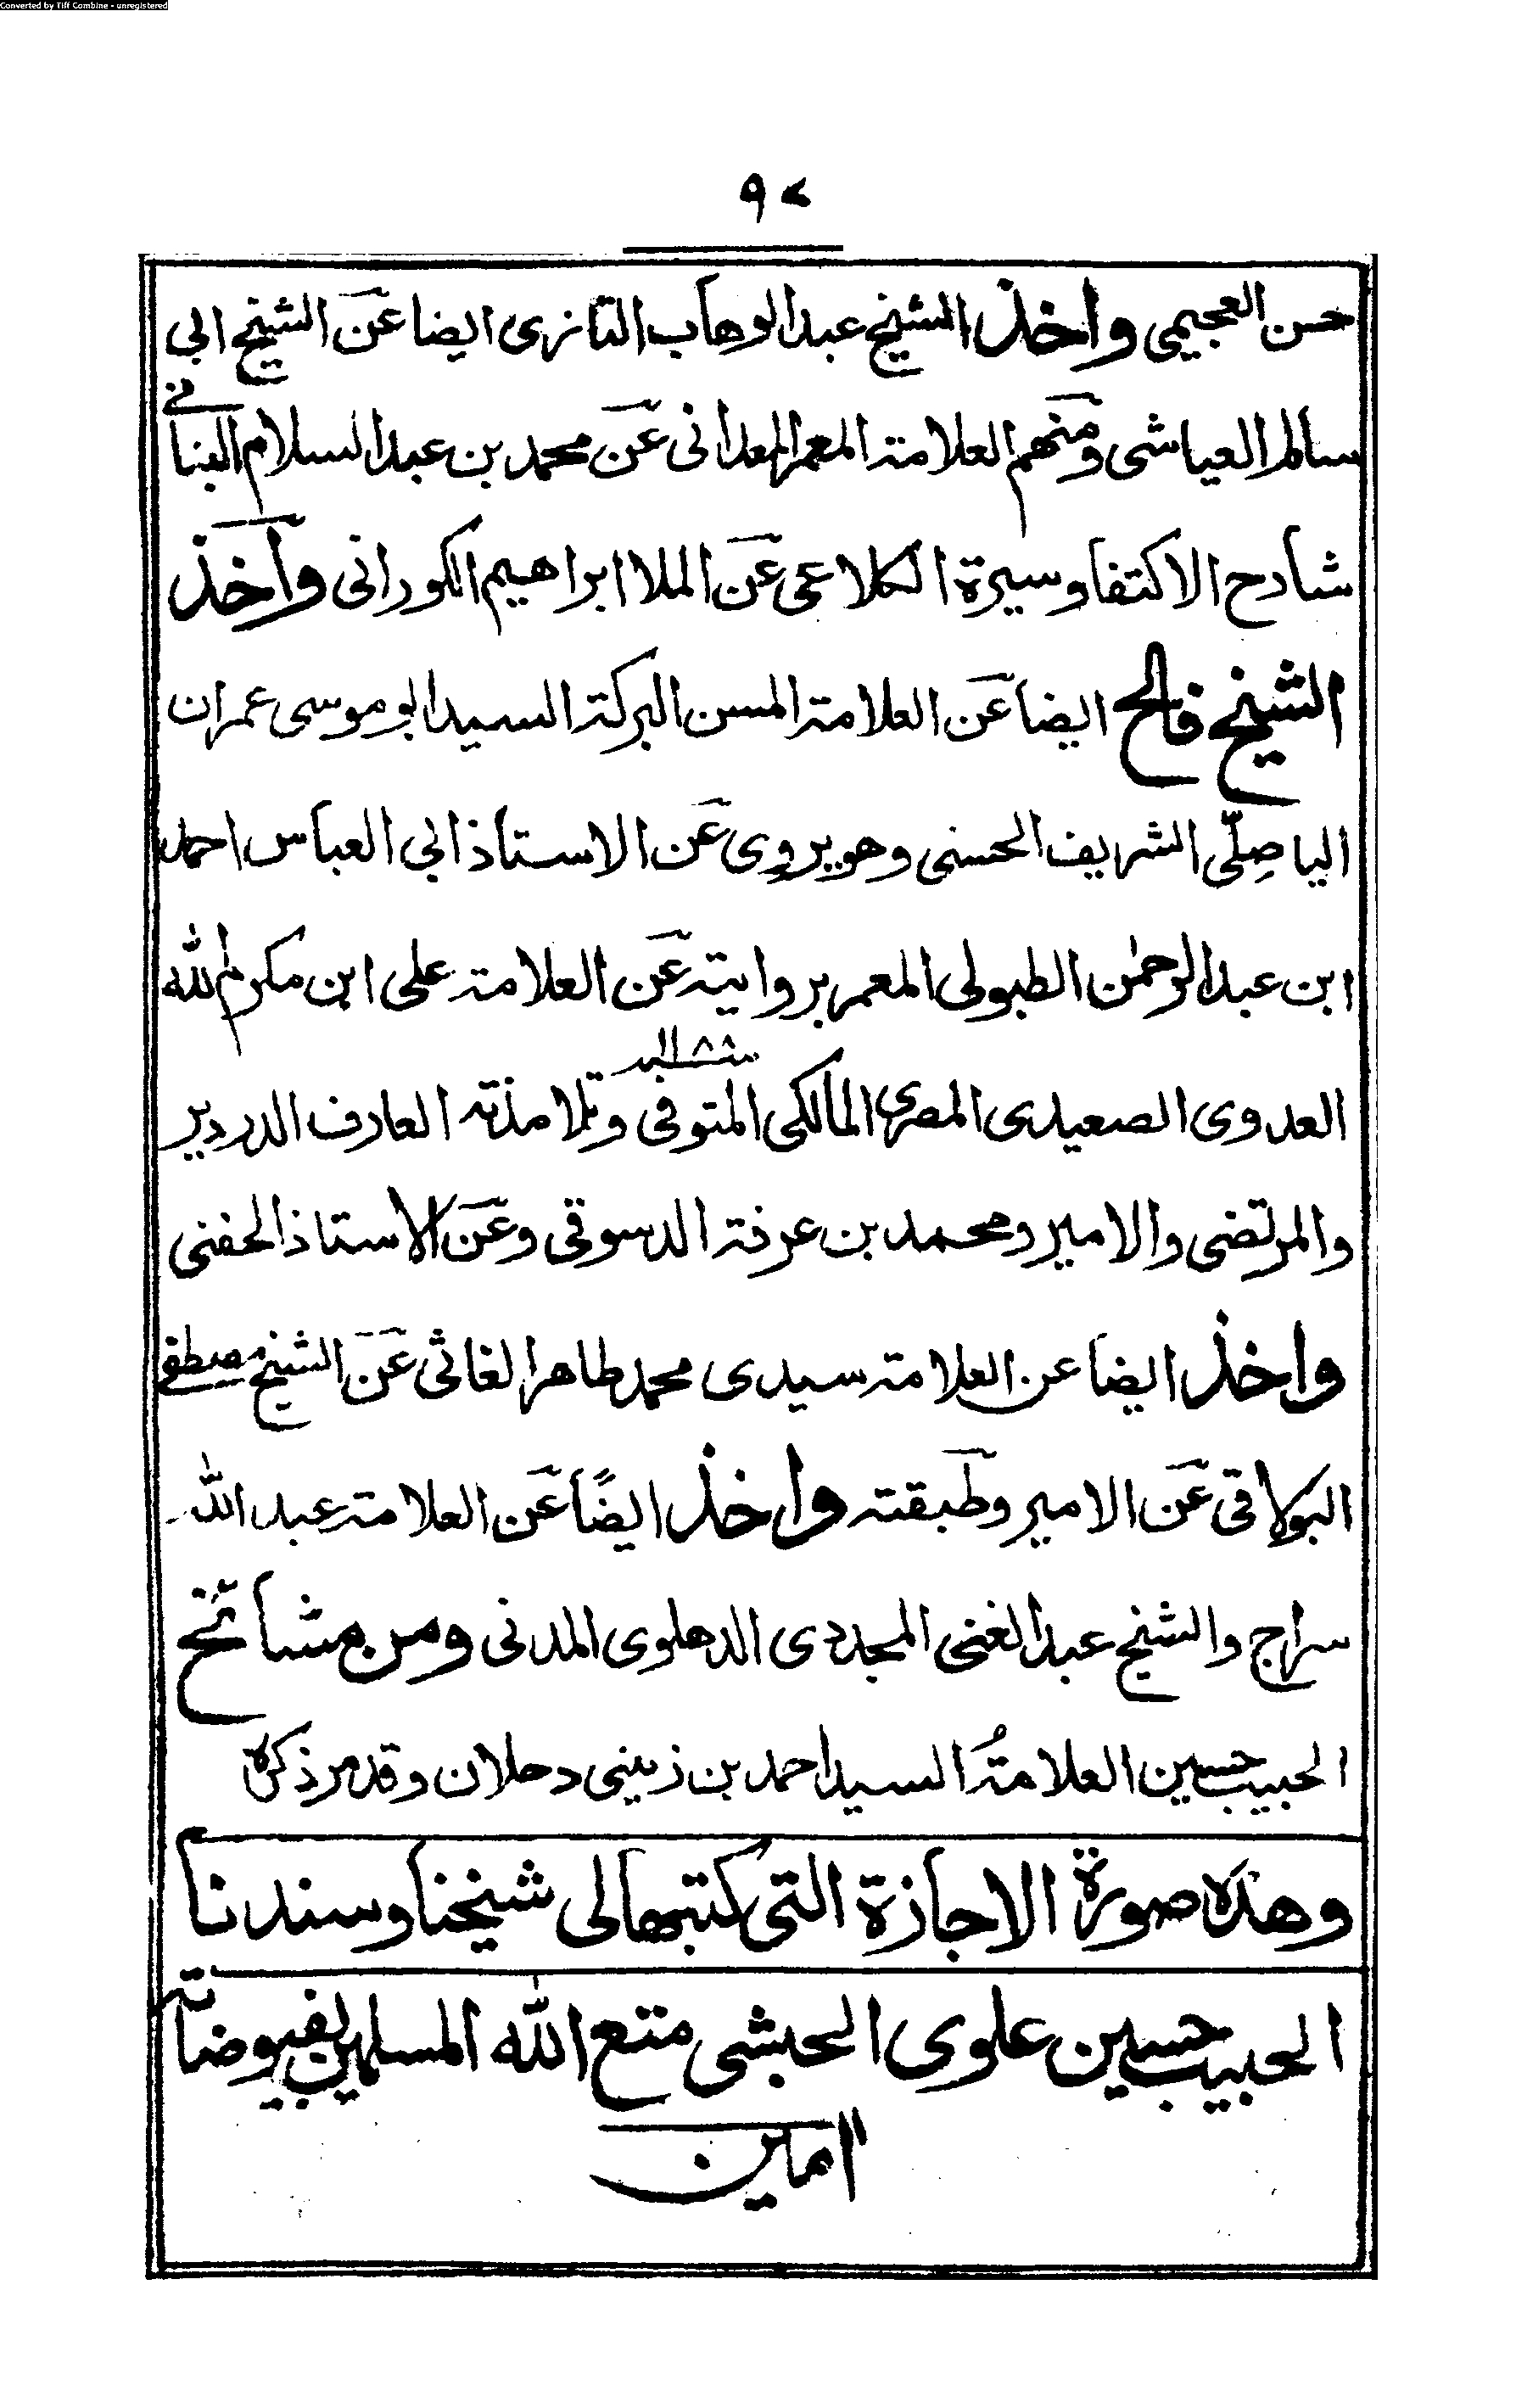 Converted by Tiff Combine - unregistered
٩٧
حسن العجيمي واخذ الشيخ عبد الوهاب التازى ايضا عن الشيخ ابى
سالم العياشى ومنهم العلامة المعمر المعدانى عن محمد بن عبد السلام البنانے
شارح الاكتفا وسيرة الكلاعى عن الملا ابراهيم الكورانى واخذ
الشيخ فالح ايضا عن العلامة المسن البركة السيد ابو موسى عمران
الياصِلّى الشريف الحسنى وهو يروى عن الاستاذ ابى العباس احمد
ابن عبد الرحمٰن الطبولى المعمر بروايته عن العلامة على ابن مكرم الله
العدوى الصعيدى المصرى المالكى المتوفى سنة ١١٨٨ وتلامذته العارف الدردير
والمرتضى والامير ومحمد بن عرفة الدسوقى وعن الاستاذ الحفنى
واخذ ايضا عن العلامة سيدى محمد طاهر الغاتى عن الشيخ مصطفى
البولاقى عن الامير وطبقته واخذ ايضًا عن العلامة عبد الله
سراج والشيخ عبد الغنى المجددى الدهلوى المدنى ومن مشائخ
الحبيب حسين العلامةُ السيد احمد بن زينى دحلان وقد مر ذكره
وهذه صورة الاجازة التى كتبها لى شيخنا وسندنا
الحبيب حسين علوى الحبشى متع الله المسلمين بفيوضاته
امين